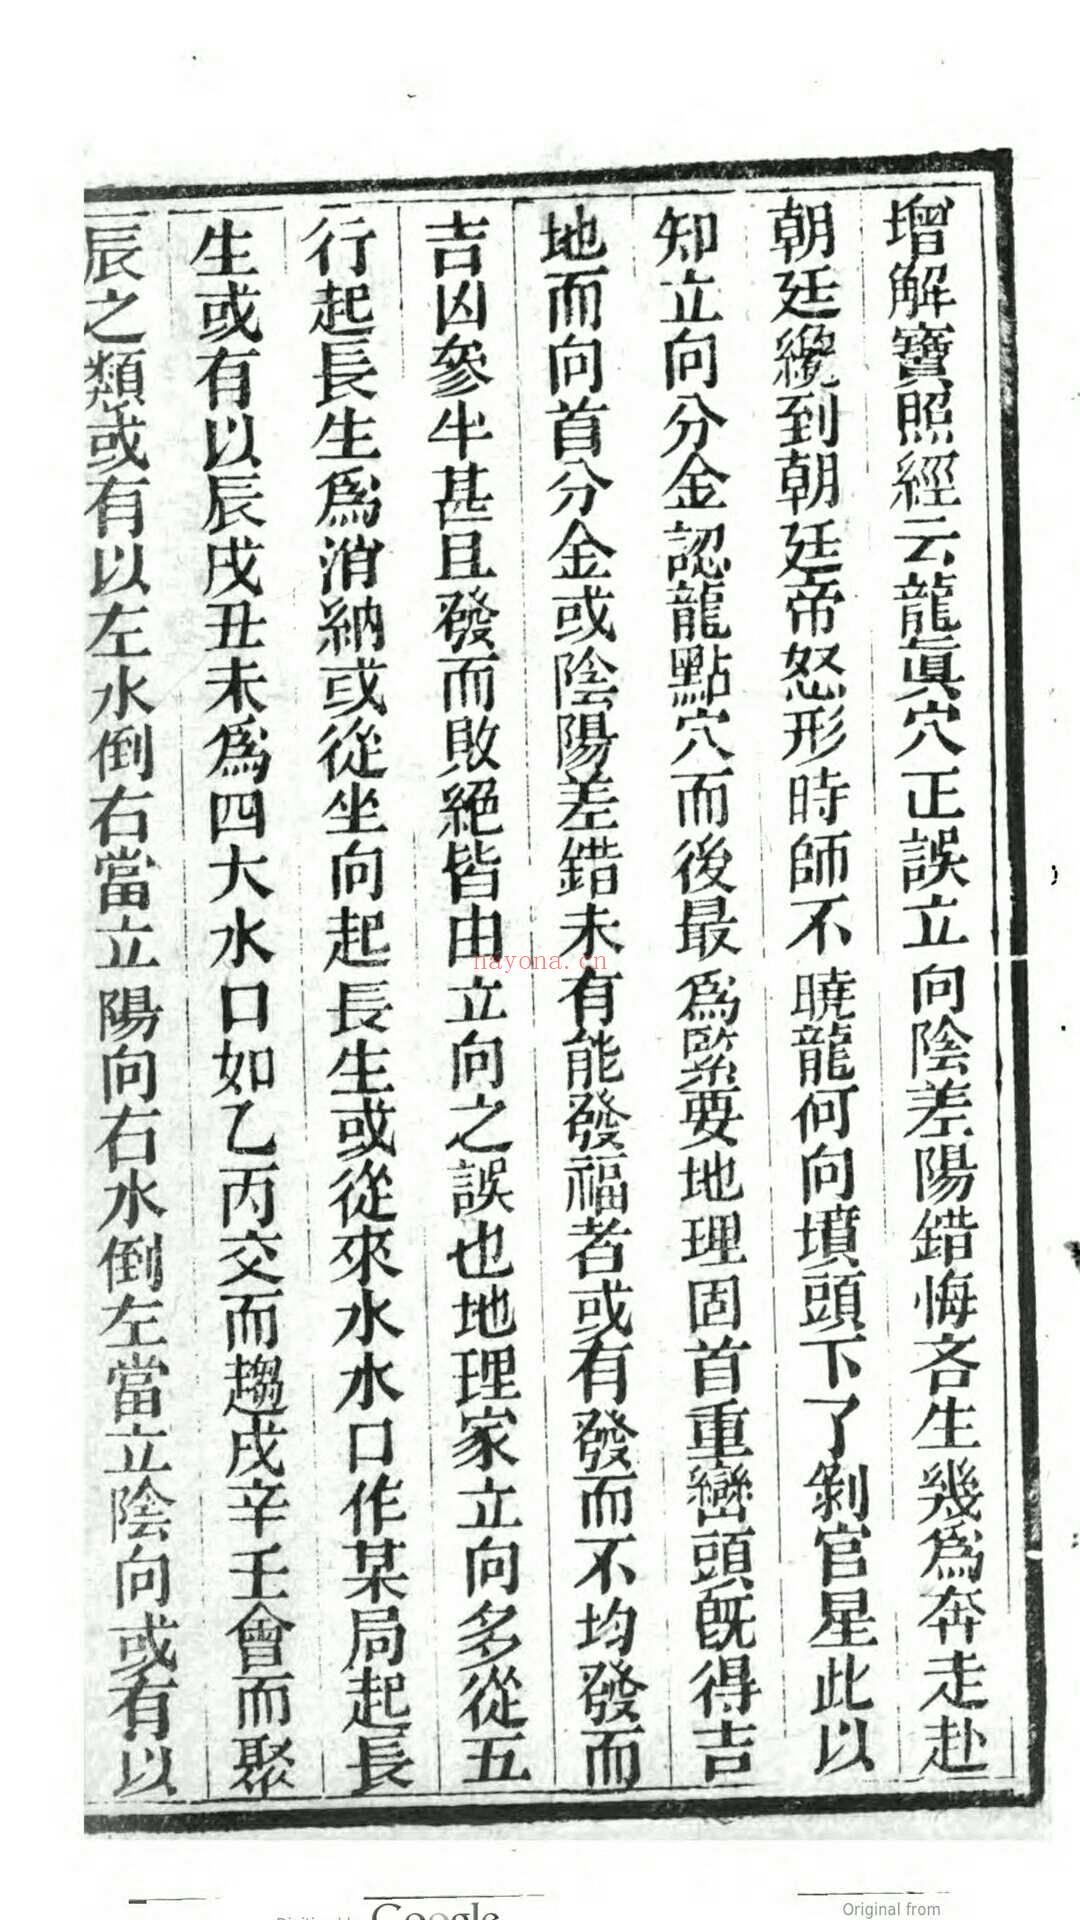 增解寶照經云龍眞穴正誤立向陰差陽錯悔吝生幾爲奔走赴
朝廷纔到朝廷帝怒形時師不曉龍何向墳頭下了剝官星此以
知立向分金認龍點穴而後最爲緊要地理固首重巒頭旣得吉
地而向首分金或陰陽差錯未有能發福者或有發而不均發而
吉凶參半甚且發而敗絕皆由立向之誤也地理家立向多從五
行起長生爲消納或從坐向起長生或從來水水口作某局起長
生或有以辰戌丑未爲四大水口如乙丙交而趨戌辛壬會而聚
辰之類或有以左水倒右當立陽向右水倒左當立陰向或有以
nayona.cn
Google
Original from